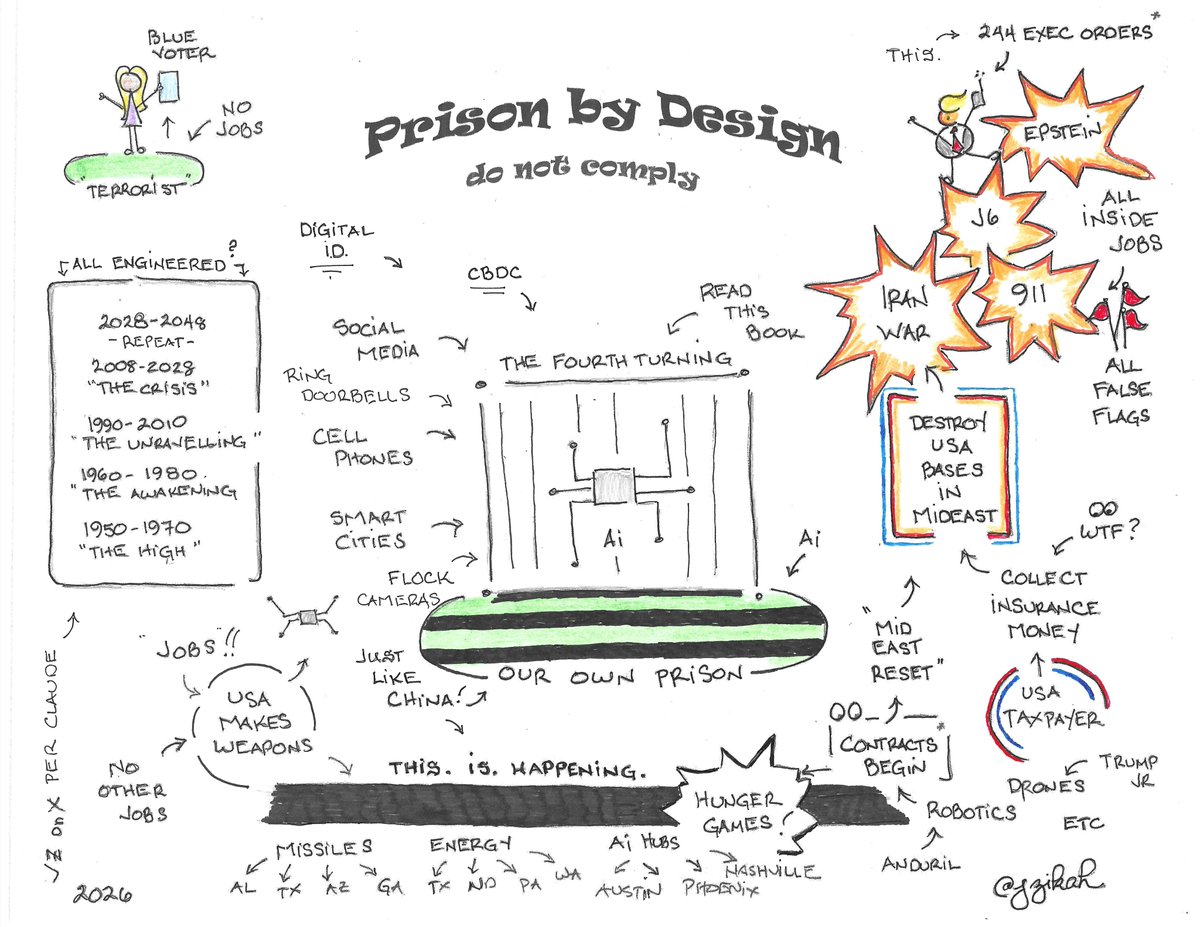 Prison by Design
do not comply
BLUE
VOTER
NO
JOBS
"TERRORIST"
THIS.
244 EXEC ORDERS*
EPSTEIN
J6
ALL
INSIDE
JOBS
IRAN
WAR
911
ALL
FALSE
FLAGS
ALL ENGINEERED?
2028-2048
-REPEAT-
2008-2028
"THE CRISIS"
1990-2010
"THE UNRAVELLING"
1960-1980.
"THE AWAKENING
1950-1970
"THE HIGH"
DIGITAL
I.D.
CBDC
SOCIAL
MEDIA
RING
DOORBELLS
CELL
PHONES
SMART
CITIES
FLOCK
CAMERAS
READ
THIS
BOOK
THE FOURTH TURNING
Ai
Ai
OUR OWN PRISON
JUST
LIKE
CHINA!
DESTROY
USA
BASES
IN
MIDEAST
WTF?
COLLECT
INSURANCE
MONEY
USA
TAXPAYER
"MID
EAST
RESET"
CONTRACTS*
BEGIN
DRONES
TRUMP
JR
ROBOTICS
ETC
ANDURIL
"JOBS"!!
USA
MAKES
WEAPONS
NO
OTHER
JOBS
THIS. IS. HAPPENING.
HUNGER
GAMES!
MISSILES
AL TX AZ GA
ENERGY
TX ND PA WA
Ai HUBS
AUSTIN PHOENIX NASHVILLE
JZ on X PER CLAUDE
2026
@jzikah